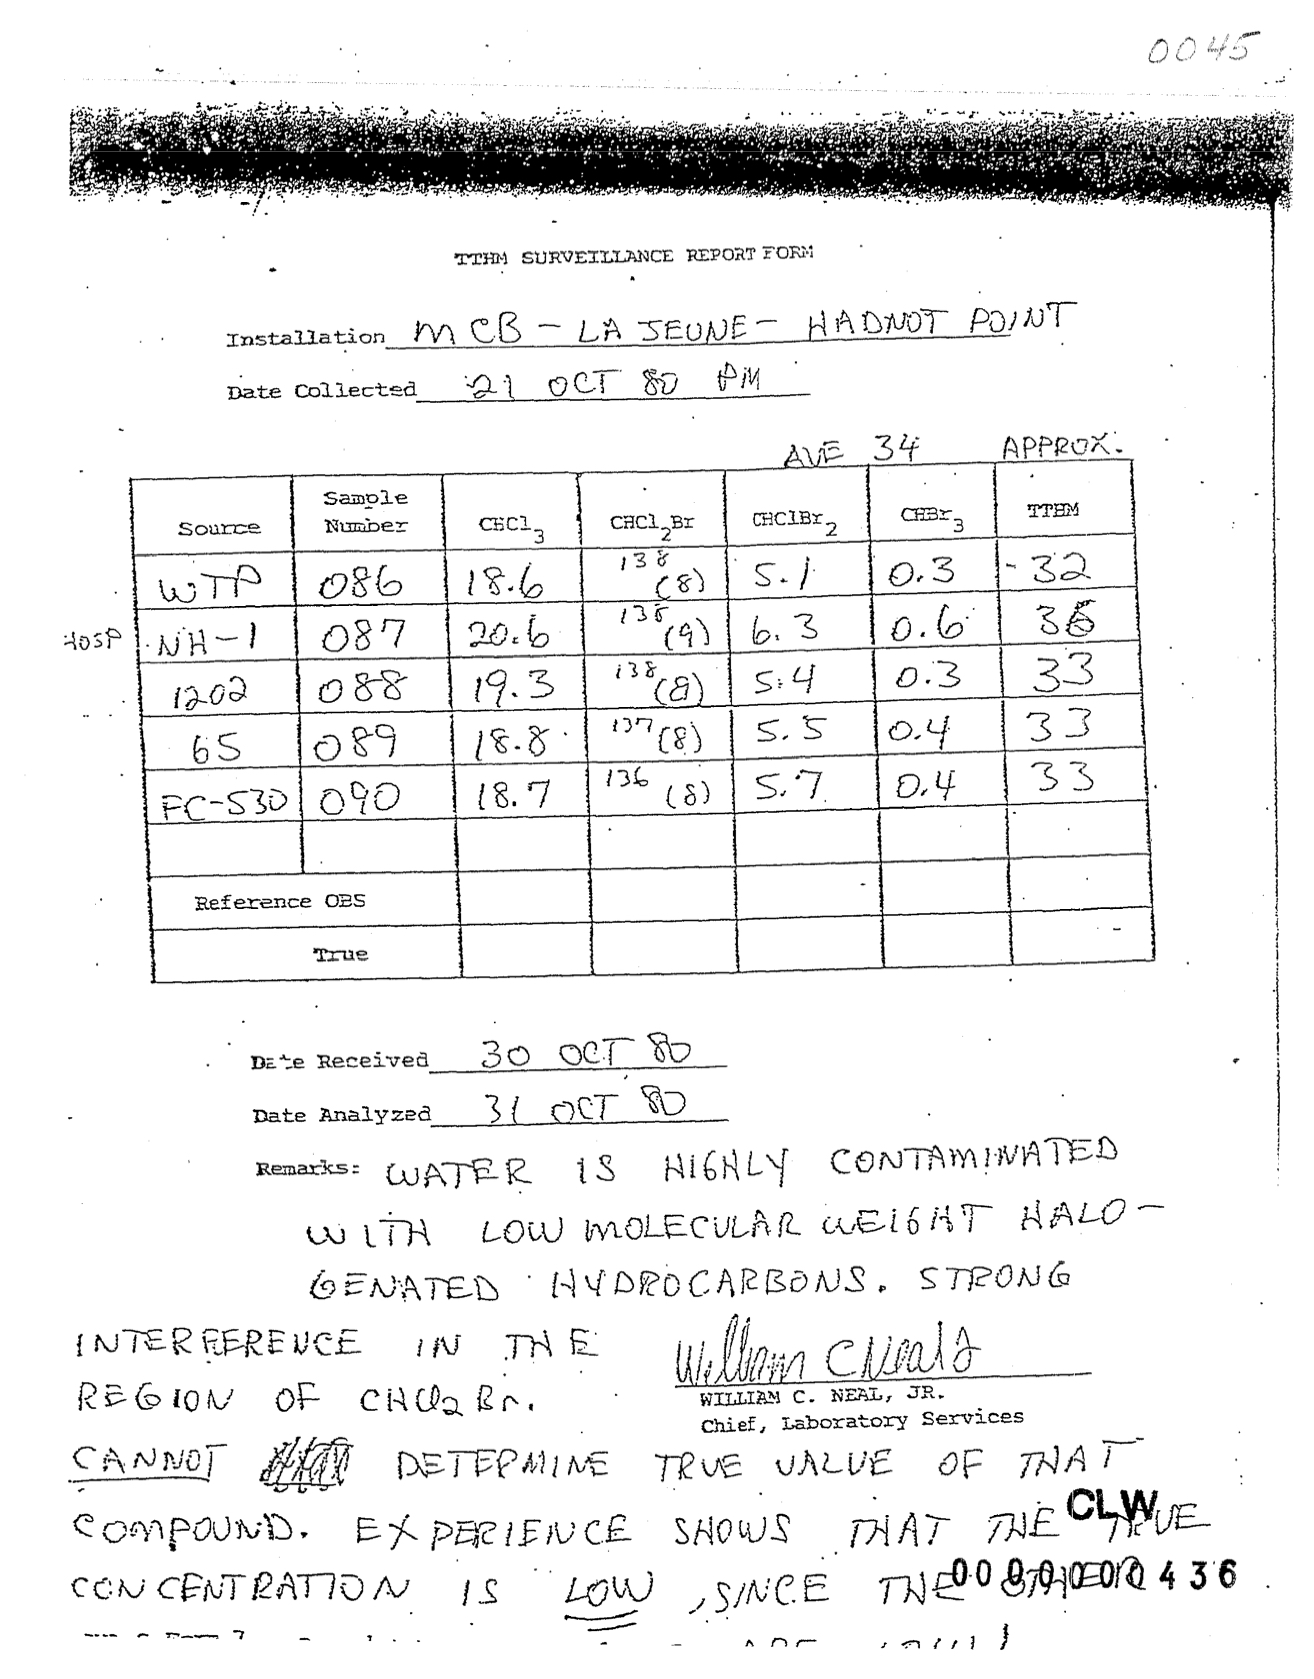 0045
TTHM SURVEILLANCE REPORT FORM
Installation MCB - LA JEUNE - HADNOT POINT
Date Collected 21 OCT 80 PM
AVE 34 APPROX.
Source Sample Number CHCl3 CHCl2Br CHClBr2 CHBr3 TTHM
WTP 086 18.6 138 (8) 5.1 0.3 32
HOSP NH-1 087 20.6 (9) 6.3 0.6
1202 088 19.3 138 (8) 5.4 0.3 33
65 089 18.8 137 (8) 5.5 0.4 33
FC-530 090 18.7 136 (8) 5.7 0.4 33
Reference OBS
True
Date Received 30 OCT 80
Date Analyzed 31 OCT 80
Remarks: WATER IS HIGHLY CONTAMINATED
WITH LOW MOLECULAR WEIGHT HALO-
GENATED HYDROCARBONS. STRONG
INTERFERENCE IN THE
REGION OF CHCl2Br.
William C Neal Jr
WILLIAM C. NEAL, JR.
Chief, Laboratory Services
CANNOT DETERMINE TRUE VALUE OF THAT
COMPOUND. EXPERIENCE SHOWS THAT THE TRUE
CLW
CONCENTRATION IS LOW, SINCE THE OTHER
0000000436